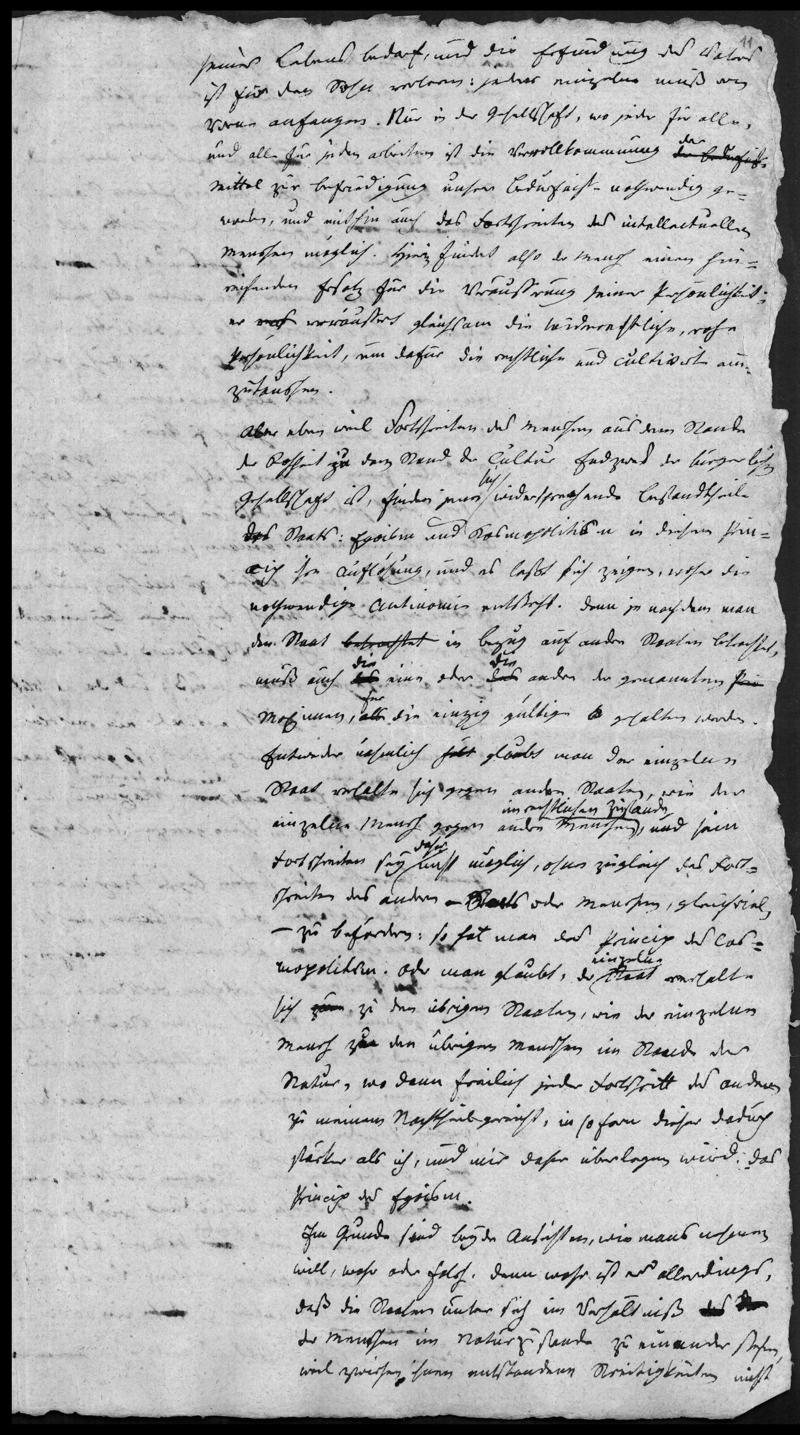 11
seines Lebens bedarf, und die Erfindung des Vaters
ist für den Sohn verloren: jeder einzelne muß von
vorne anfangen. Nur in der Gesellschaft, wo jeder für alle,
und alle für jeden arbeiten ist die Vervollkommnung der
mittel zur befriedigung unsrer bedürfniße nothwendig ge-
worden, und mithin auch das Fortschreiten des intellectuellen
Menschen möglich. Hier findet also der Mensch einen hin-
reichenden Ersatz für die Veräusserung seiner Persönlichkeit:
er veräussert gleichsam die widerrechtliche, rohe
Persönlichkeit, um dafür die rechtliche und cultivirte ein-
zutauschen.
Aber eben weil Fortschreiten des Menschen aus dem Stande
der Rohheit zu dem Stand der Cultur Endzweck der bürgerlichen
Gesellschaft ist, finden jene sich widersprechende Bestandtheile
des Staats: Egoism und Kosmopolitism in diesem Prin-
cip ihre Auflösung, und es läßt sich zeigen, woher die
nothwendige Antinomie entsteht. Denn je nachdem man
den Staat betrachtet in bezug auf andere Staaten betrachtet,
muß auch die eine oder die andere der genannten
Maximen, für die einzig gültige gehalten werden.
Entweder nähmlich glaubt man der einzelne
Staat verhalte sich gegen andere Staaten, wie der
einzelne Mensch gegen andere Menschen im rechtlichen Zustande, und sein
Fortschreiten sey daher nicht möglich, ohne zugleich das Fort-
schreiten des andern – Staats oder Menschen, gleichviel,
– zu befördern: so hat man das Princip des Cos-
mopolitism. Oder man glaubt, der einzelne Staat verhalte
sich zu den übrigen Staaten, wie der einzelne
Mensch zu den übrigen Menschen im Stande der
Natur, wo dann freilich jeder Fortschritt des andern
zu meinem Nachtheil gereicht, in so fern dieser dadurch
stärker als ich, und mir daher überlegen wird: das
Princip des Egoism.
Im Grunde sind beyde Ansichten, wie mans nehmen
will, wahr oder falsch. Denn wahr ist es allerdings,
daß die Staaten unter sich im Verhältniß
der Menschen im Naturzustande zu einander stehen,
weil zwischen ihnen entstandene Streitigkeiten nicht